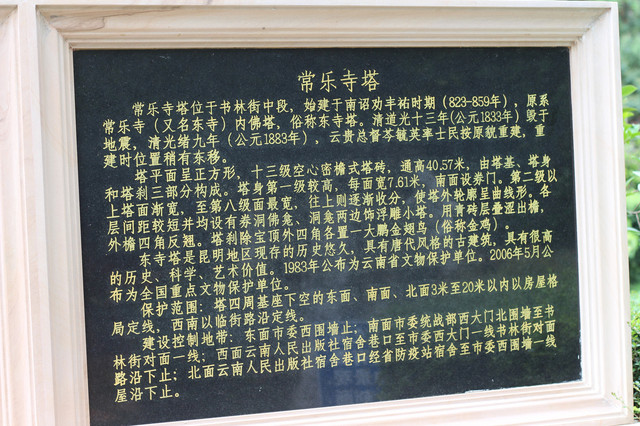 常乐寺塔
常乐寺塔位于书林街中段，始建于南诏劝丰祐时期（823-859年），原系
常乐寺（又名东寺）内佛塔，俗称东寺塔。清道光十三年(公元1833年）毁于
地震，清光绪九年（公元1883年），云贵总督岑毓英率士民按原貌重建，重
建时位置稍有东移。
塔平面呈正方形，十三级空心密檐式塔砖，通高40.57米，由塔基、塔身
和塔刹三部分构成。塔身第一级较高，每面宽7.61米，南面设券门。第二级以
上塔面渐宽，至第八级面最宽，往上则逐渐收分，使塔外轮廓呈曲线形。各
层间距较短并均设有券洞佛龛、洞龛两边饰浮雕小塔。用青砖层叠涩出檐，
外檐四角反翘。塔刹除宝顶外四角各置一大鹏金翅鸟（俗称金鸡）。
东寺塔是昆明地区现存的历史悠久、具有唐代风格的古建筑，具有很高
的历史、科学、艺术价值。1983年公布为云南省文物保护单位。2006年5月公
布为全国重点文物保护单位。
保护范围：塔四周基座下空的东面、南面、北面3米至20米以内以房屋格
局定线，西南以临街路沿定线。
建设控制地带：东面市委西围墙止；南面市委统战部西大门北围墙至书
林街对面一线；西面云南人民出版社宿舍巷口至市委西大门一线书林街对面
路沿下止；北面云南人民出版社宿舍巷口经省防疫站宿舍至市委西围墙一线
屋沿下止。